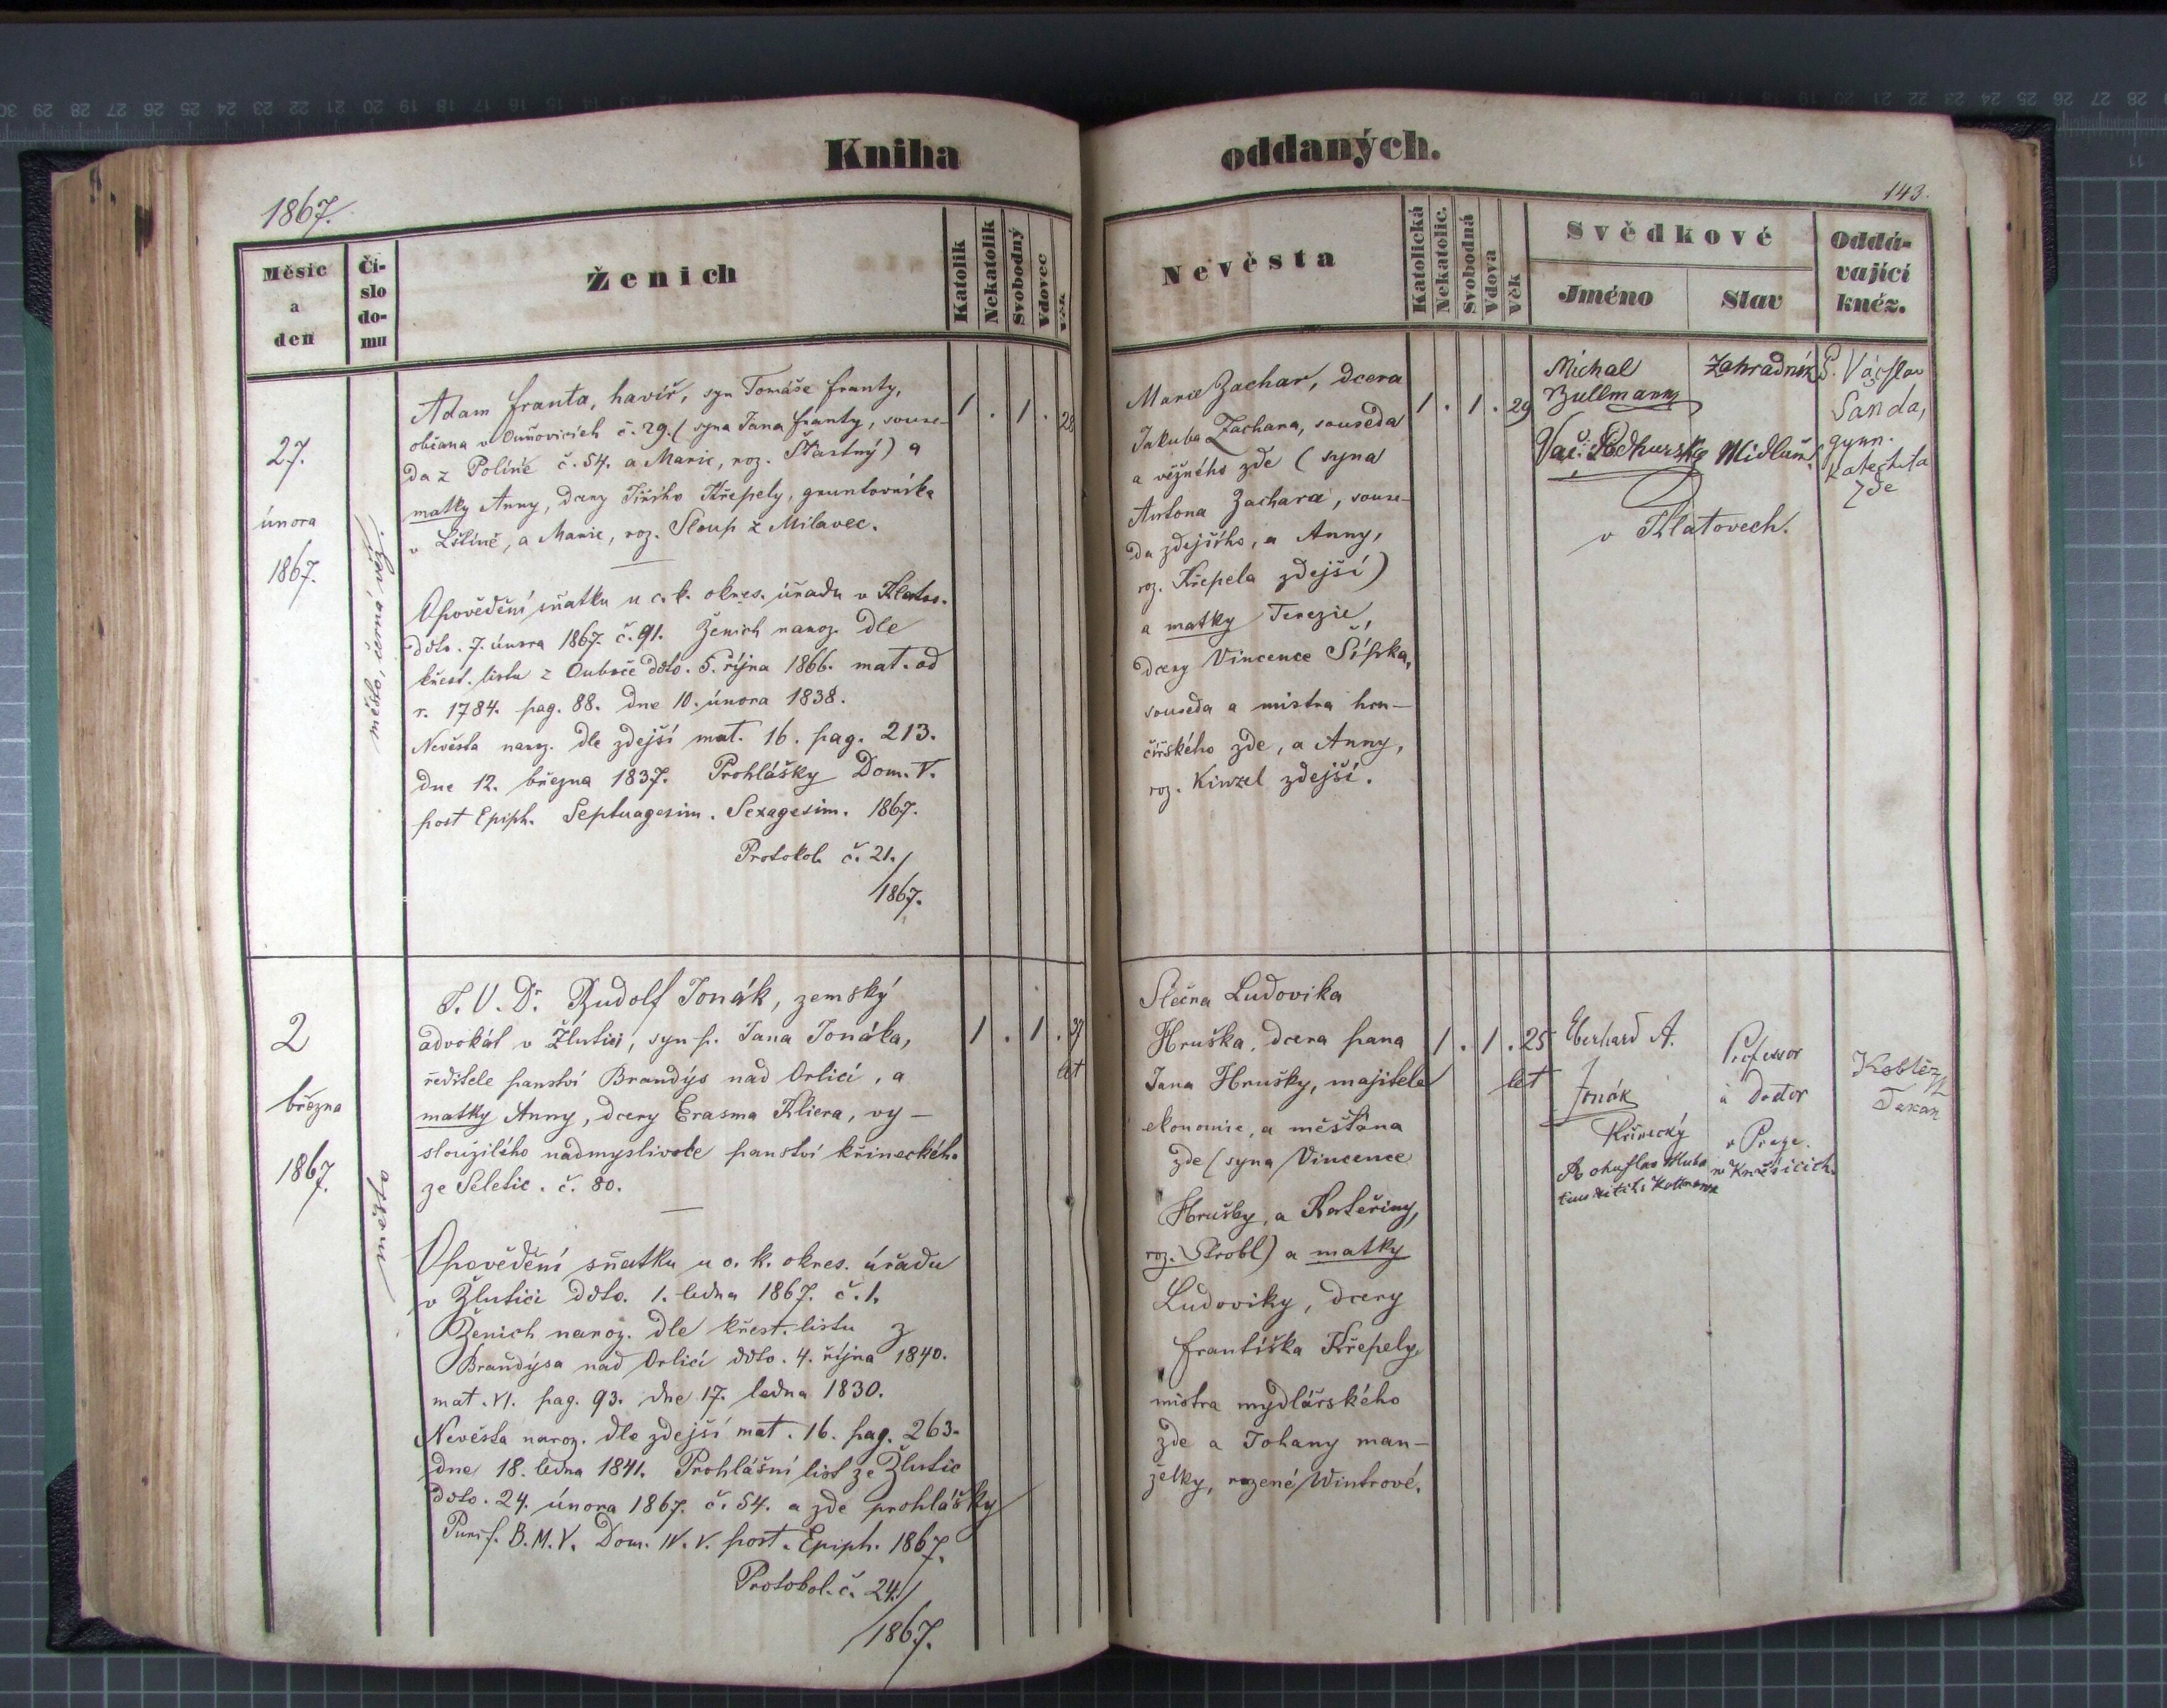 Kniha oddaných.
1867.
143.
Měsíc a den
Číslo domu
Ženich
Katolík
Nekatolík
Svobodný
Vdovec
Věk
Nevěsta
Katolická
Nekatolic.
Svobodná
Vdova
Věk
Svědkové
Jméno
Stav
Oddávající kněz.
27.
února
1867.
město, černá věž.
Adam Franta, havíř, syn Tomáše Franty,
občana v Ouňovicích č. 29. (syna Jana Franty, souse-
da z Políně č. 54. a Marie, roz. Šťastný) a
matky Anny, dcery Jiřího Křepely, gruntovníka
v Lštíně, a Marie, roz. Sloup z Milavec.
Opovědění sňatku u c. k. okres. úřadu v Klatov.
ddto. 7. února 1867. č. 91. Ženich naroz. dle
křest. listu z ddto. 5. října 1866. mat. od
r. 1784. pag. 88. dne 10. února 1838.
Nevěsta naroz. dle zdejší mat. 16. pag. 213.
dne 12. března 1837. Prohlášky Dom. V.
post Epiph. Septuagesim. Sexagesim. 1867.
Protokol. č. 21./
1867.
1 . 1 . 28
Marie Zachar, dcera
Jakuba Zachara, souseda
a věžného zde (syna
Antona Zachara, souse-
da zdejšího, a Anny,
roz. Křepela zdejší)
a matky Terezie,
dcery Vincence Šípka,
souseda a mistra hrn-
čířského zde, a Anny,
roz. Kinzel zdejší.
1 . 1 . 29
Michal Zahradník
Bullmann
Vac. Podhurský Midlář
v Klatovech.
P. Václav
Šanda,
gymn.
Katecheta
zde
2
března
1867.
město
J. U. Dr. Rudolf Jonák, zemský
advokát v Žlutici, syn p. Jana Jonáka,
ředitele panství Brandýs nad Orlicí, a
matky Anny, dcery Erasma Kliera, vy-
sloužilého nadmyslivce panství křineckého
ze Seletic. č. 80.
Opovědění sňatku u c. k. okres. úřadu
v Žlutici ddto. 1. ledna 1867. č. 1.
Ženich naroz. dle křest. listu z
Brandýsa nad Orlicí ddto. 4. října 1840.
mat. VI. pag. 93. dne 17. ledna 1830.
Nevěsta naroz. dle zdejší mat. 16. pag. 263.
dne 18. ledna 1841. Prohlášní list ze Žlutic
ddto. 24. února 1867. č. 54. a zde prohlášky
Purif. B. M. V. Dom. IV. V. post. Epiph. 1867.
Protokol. č. 24./
1867.
1 . 1 . 37
let
Slečna Ludovika
Hruška, dcera pana
Jana Hrušky, majitele
ekonomie, a měšťana
zde (syna Vincence
Hrušky, a Kateřiny,
roz. Strobl) a matky
Ludoviky, dcery
Františka Křepely,
mistra mydlářského
zde a Johany man-
želky, rozené Wintrové.
1 . 1 . 25
let
Eberhard A. Professor
Jonák a Doctor
Křinecký v Praze.
v Kněžicích.